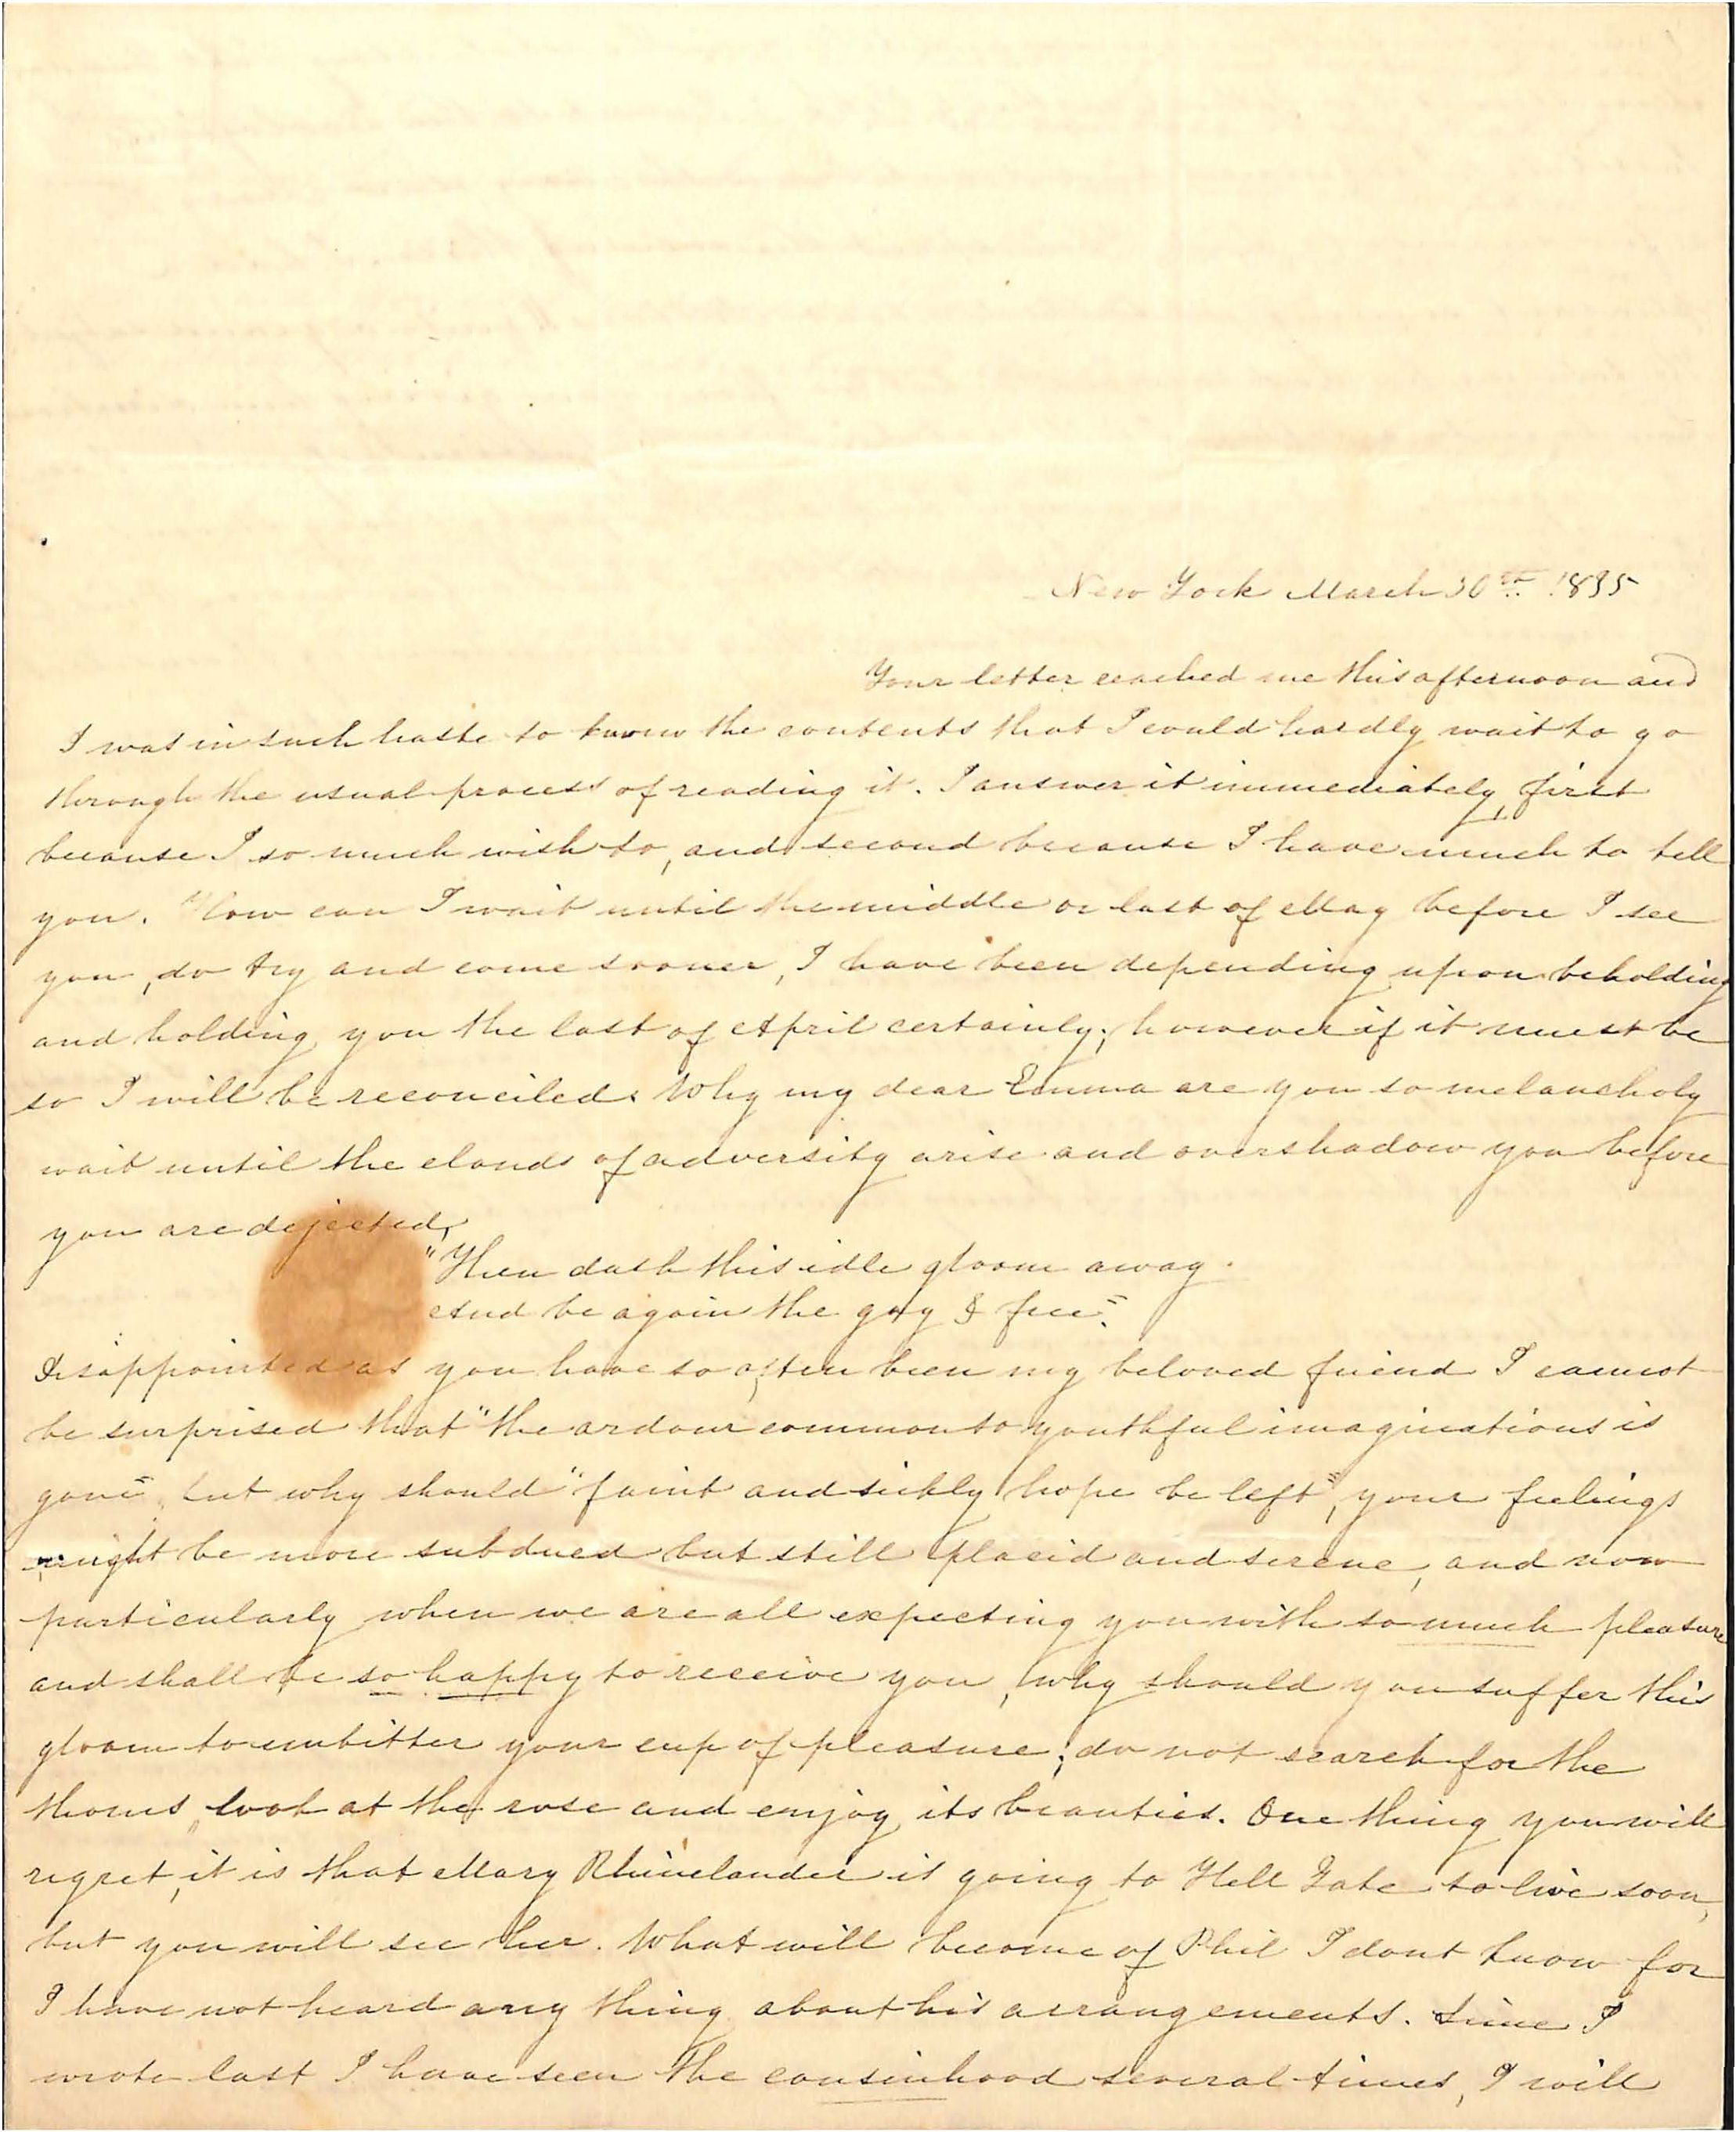 New York March 30th. 1835
Your letter reached me this afternoon and
I was in such haste to know the contents that I could hardly wait to go
through the usual process of reading it. I answer it immediately, first
because I so much wish to, and second because I have much to tell
you. How can I wait until the middle or last of May before I see
you, do try and come sooner, I have been depending upon beholding
and holding you the last of April certainly; however if it must be
so I will be reconciled. Why my dear Emma are you so melancholy
wait until the clouds of adversity arise and overshadow you before
you are dejected,
"Then dash this idle gloom away.
And be again the gay & free."
Disappointed as you have so often been my beloved friend I cannot
be surprised that "the ardour common to youthful imaginations is
gone", but why should "faint and sickly hope be left", your feelings
might be more subdued but still placid and serene, and now
particularly when we are all expecting you with so much pleasure
and shall be so happy to receive you, why should you suffer this
gloom to embitter your cup of pleasure; do not search for the
thorns, look at the rose and enjoy its beauties. One thing you will
regret, it is that Mary Rhinelander is going to Hell Gate to live soon,
but you will see her. What will become of Phil I dont know for
I have not heard any thing about his arrangements. Since I
wrote last I have seen the cousinhood several times, I will